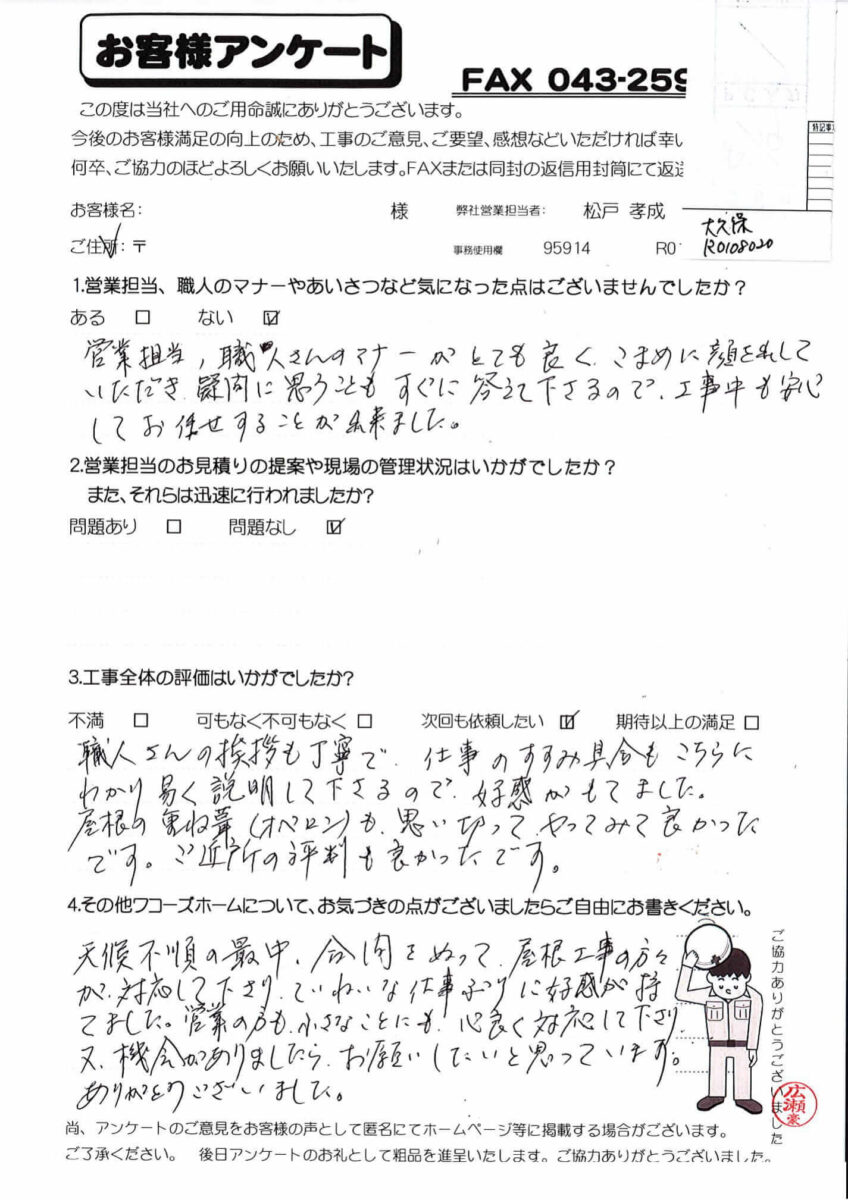 お客様アンケート
FAX 043-259
この度は当社へのご用命誠にありがとうございます。
今後のお客様満足の向上のため、工事のご意見、ご要望、感想などいただければ幸い
何卒、ご協力のほどよろしくお願いいたします。FAXまたは同封の返信用封筒にて返送
特記事
お客様名: 様 弊社営業担当者: 松戸 孝成
大久保
ご住所: 〒 事務使用欄 95914 R0
R0108020
1.営業担当、職人のマナーやあいさつなど気になった点はございませんでしたか?
ある □ ない ☑
営業担当、職人さんのマナーがとても良く、こまめに顔を出して
いただき、疑問に思うこともすぐに答えて下さるので、工事中も安心
してお任せすることが出来ました。
2.営業担当のお見積りの提案や現場の管理状況はいかがでしたか?
また、それらは迅速に行われましたか?
問題あり □ 問題なし ☑
3.工事全体の評価はいかがでしたか?
不満 □ 可もなく不可もなく □ 次回も依頼したい ☑ 期待以上の満足 □
職人さんの挨拶も丁寧で、仕事のすすみ具合もこちらに
わかり易く説明して下さるので、好感がもてました。
屋根の重ね葺(オベロン)も、思い切ってやってみて良かった
です。ご近所の評判も良かったです。
4.その他ワコーズホームについて、お気づきの点がございましたらご自由にお書きください。
天候不順の最中、合間をぬって、屋根工事の方々
が、対応して下さり、ていねいな仕事ぶりに好感が持
てました。営業の方も、小さなことにも、心良く対応して下さり
又、機会がありましたら、お願いしたいと思っています。
ありがとうございました。
ご協力ありがとうございました
広瀬豪
尚、アンケートのご意見をお客様の声として匿名にてホームページ等に掲載する場合がございます。
ご了承ください。 後日アンケートのお礼として粗品を進呈いたします。ご協力ありがとうございました。